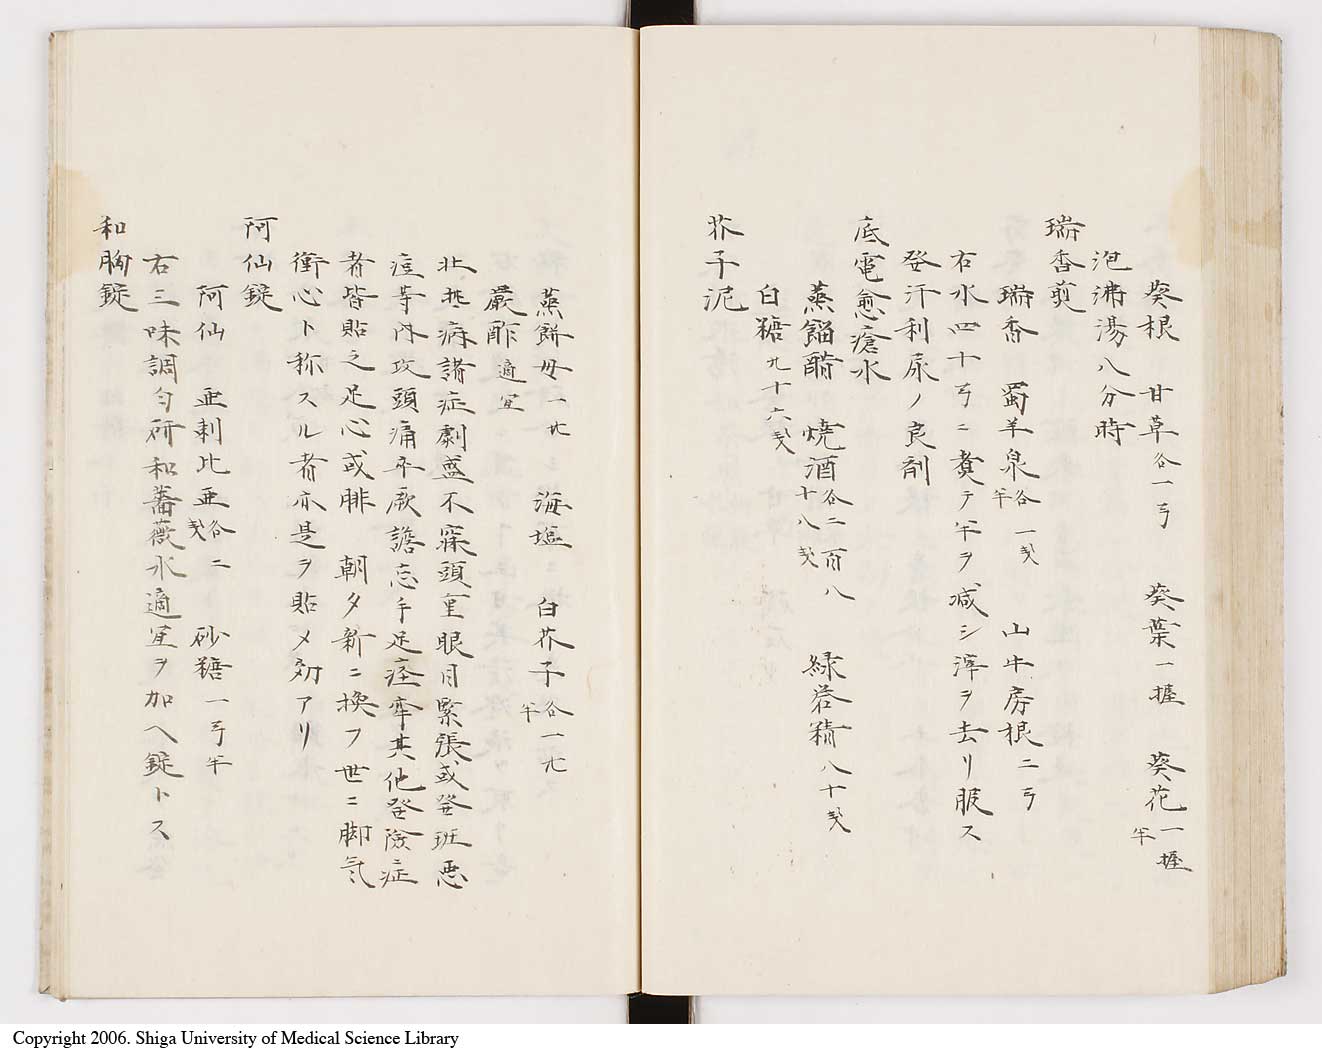 葵根　甘草各一弓　葵葉一握　葵花一握半
泡沸湯八分時
瑞香煎
瑞香　蜀羊泉各一戔半　山牛房根二弓
右水四十弓ニ煮テ半ヲ減シ滓ヲ去リ服ス
発汗利尿ノ良剤
底電愈瘡水
蒸餾醋　焼酒各二百八十八戔　緑礬精八十戔
白糖九十六戔
芥子泥
蒸餅母一斤　海塩　白芥子各一斤半
厳酢適宜
此熱病諸症劇盛不寐頭重眼目緊張或発斑悪
痘等内攻頭痛卒厥譫忘手足痙牽其他発険症
者皆貼之足心或腓　朝夕新ニ換フ世ニ脚気
衝心ト称スル者亦是ヲ貼メ効アリ
阿仙錠
阿仙　亜剌比亜各二戔　砂糖一弓半
右三味調匀研和薔薇水適宜ヲ加ヘ錠トス
和胸錠
Copyright 2006. Shiga University of Medical Science Library